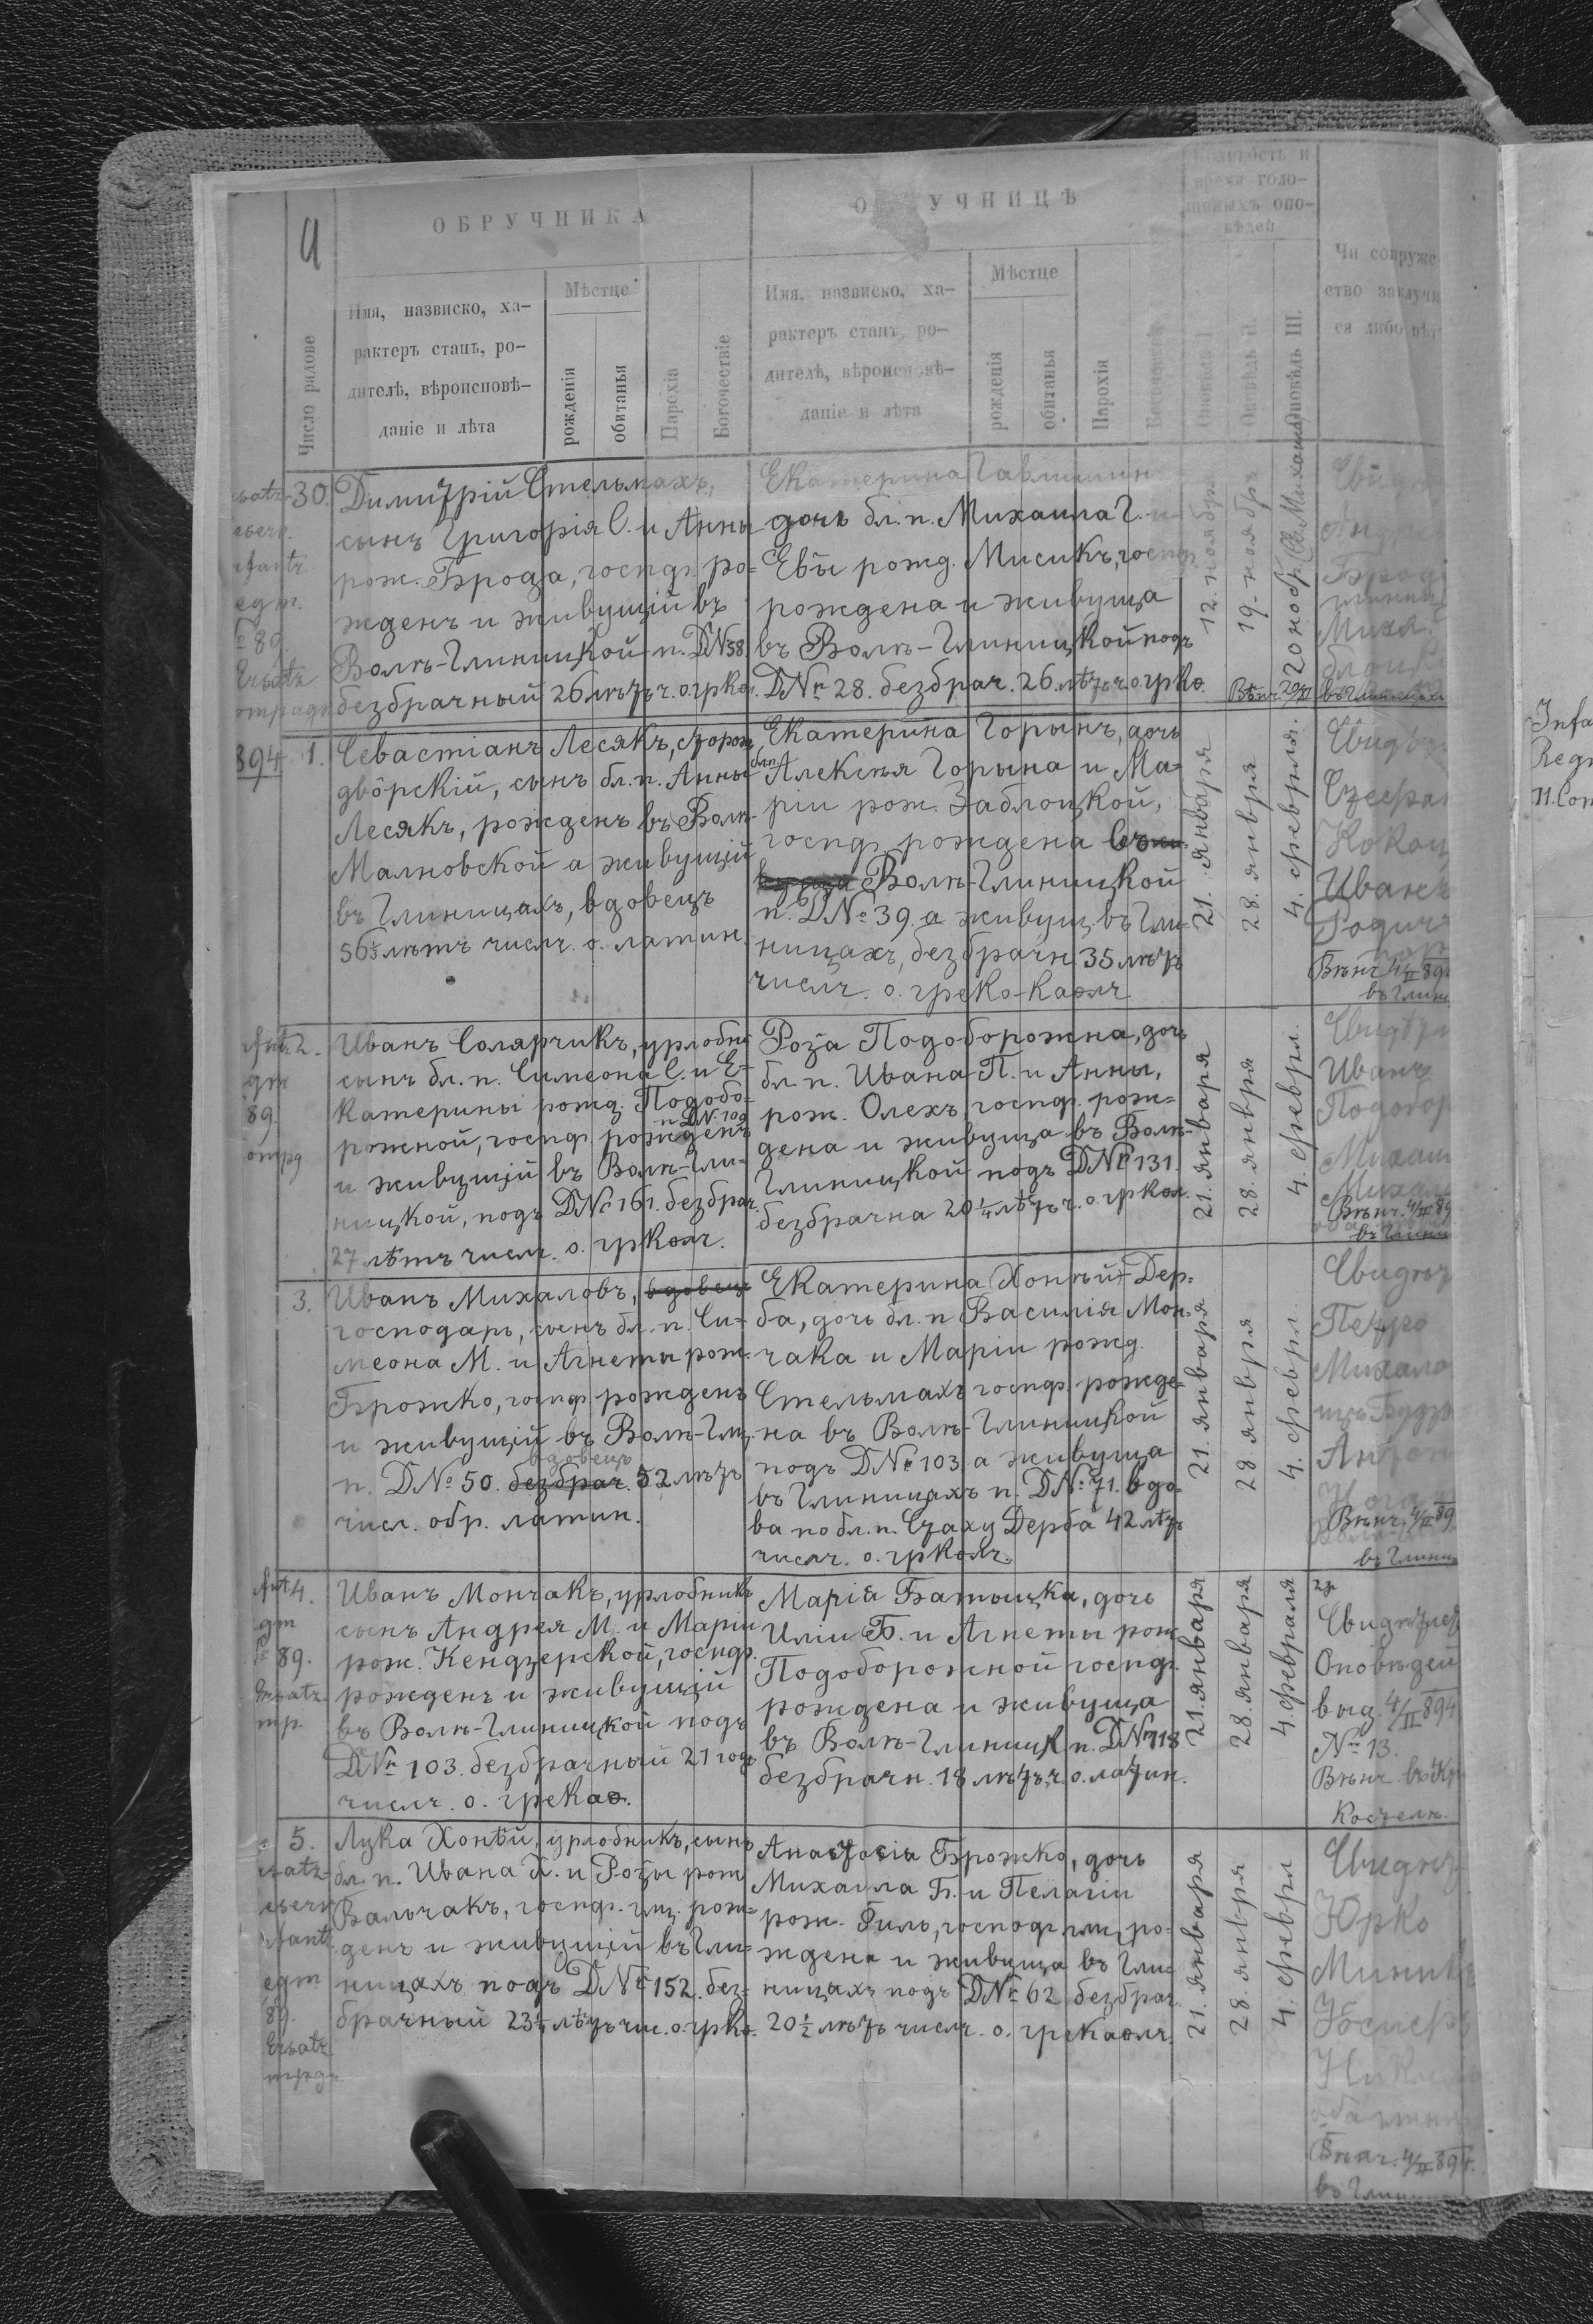 ОБРУЧНИКА
Число рядове
Имя, назвиско, ха-
рактеръ станъ, ро-
дителѣ, вѣроисповѣ-
даніе и лѣта
Мѣстце
рожденія
обитанья
Парохія
Богочестіе
УЧНИЦѢ
Имя, назвиско, ха-
рактеръ станъ, ро-
дителѣ, вѣроисповѣ-
даніе и лѣта
Мѣстце
рожденія
обитанья
Парохія
время голо-
шеныхъ опо-
вѣдей
Чи супруже
ство заключи
ся либо нѣт
30. Димитрій Стельмахъ,
сынъ Григорія С. и Анны
рож. Брода, господ. ро-
жденъ и живущій въ
Волѣ-Глиницкой п. DN 58
безбрачный 26 лѣтъ ч. о. грко.
Екатерина
дочь бл. п. Михаила Г. и
Евы рожд. Мисикъ, госпд.
рождена и живуща
въ Волѣ-Глиницкой подъ
DNr 28. безбрач. 26 лѣтъ ч. о. грко.
12. ноября
19. ноября
20 ноябр
894 1. Севастіанъ Лесякъ, сторожъ
двôрскій, сынъ бл. п. Анны
Лесякъ, рожденъ въ Волѣ-
Малновской а живущій
въ Глиницахъ, вдовецъ
56½ лѣтъ числч. о. латин.
Екатерина Горынъ, дочь
бл.п. Алексѣя Горына и Ма-
ріи рож. Заблоцкой,
госпд. рождена въ
Волѣ-Глиницкой
п. DNo 39. а живущ. въ Гли-
ницахъ, безбрачн. 35 лѣтъ
числч. о. греко-каѳлч
21. января
28. января
4. февраля.
Иванъ
Родич
Вѣнч. 4/II 89
въ Глин
2. Иванъ Солярчикъ, урлобни
сынъ бл. п. Симеона С. и Е-
катерины рожд. Подобо-
п. DN. 109
рожной, госпд. рожденъ
и живущій въ Волѣ-Гли-
ницкой, подъ DNr 161. безбрач.
27 лѣтъ числ. о. гркаѳлч.
Роза Подоборожна, дочь
бл. п. Ивана П. и Анны,
рож. Олехъ, госпд. рож-
дена и живуща въ Волѣ-
Глиницкой подъ DNr 131.
безбрачна 20¼ лѣтъ ч. о. гркаѳл.
21. января
28. января
4. феврл.
Иванъ
Подобор
Вѣнч. 4/II 89
въ Глини
3. Иванъ Михаловъ, вдовецъ
господарь, сынъ бл. п. Си-
меона М. и Агнеты рож.
Брожко, госпд. рожденъ
и живущій въ Волѣ-Глц.
вдовецъ
п. DNo 50. безбрач. 52 лѣтъ
числ. обр. латин.
Екатерина Хонѣй-Дер-
ба, дочь бл. п Василія Мон-
чака и Маріи рожд.
Стельмахъ госпд. рожде-
на въ Волѣ-Глиницкой
подъ DNr 103 а живуща
въ Глиницахъ п. DNr 71. вдо-
ва по бл. п. Стаху Дерба 42 лѣтъ
числч. о. гркаѳлч.
21. января
28 января
4. феврл.
Петро
Михало
Антон
Вѣнч. 4/II 89
въ Глини
4. Иванъ Мончакъ, урлобникъ
сынъ Андрея М. и Маріи
рож. Кендзерской, госпд.
рожденъ и живущій
въ Волѣ-Глиницкой подъ
DNr 103. безбрачный 21 годъ
числч. о. грекаѳ.
Марія Батыцка, дочь
Иліи Б. и Агнеты рож
Подоборожной госпд.
рождена и живуща
въ Волѣ-Глиницк п. DNr 118
безбрачн. 18 лѣтъ ч. о. латин.
21. января
28. января
4. февраля
Оповѣдей
выд. 4/II 894
Nr 13.
Вѣнч. въ Кр
Костелѣ.
5. Лука Хонѣй, урлобникъ, сынъ
бл. п. Ивана Х. и Розы рож
Вальчакъ, госпд. глц. рож-
денъ и живущій въ Гли-
ницахъ подъ DNr 152. без-
брачный 23½ лѣтъ чис. о. грко.
Анастасія Брожко, дочь
Михаила Б. и Пелагіи
рож. Филь, господ. глц ро-
ждена и живуща въ Гли-
ницахъ подъ DNr 62 безбрач.
20½ лѣтъ числч. о. грекаѳлч.
21. января
28. января
4. феврл
Юрко
Вѣнч. 4/II 894.